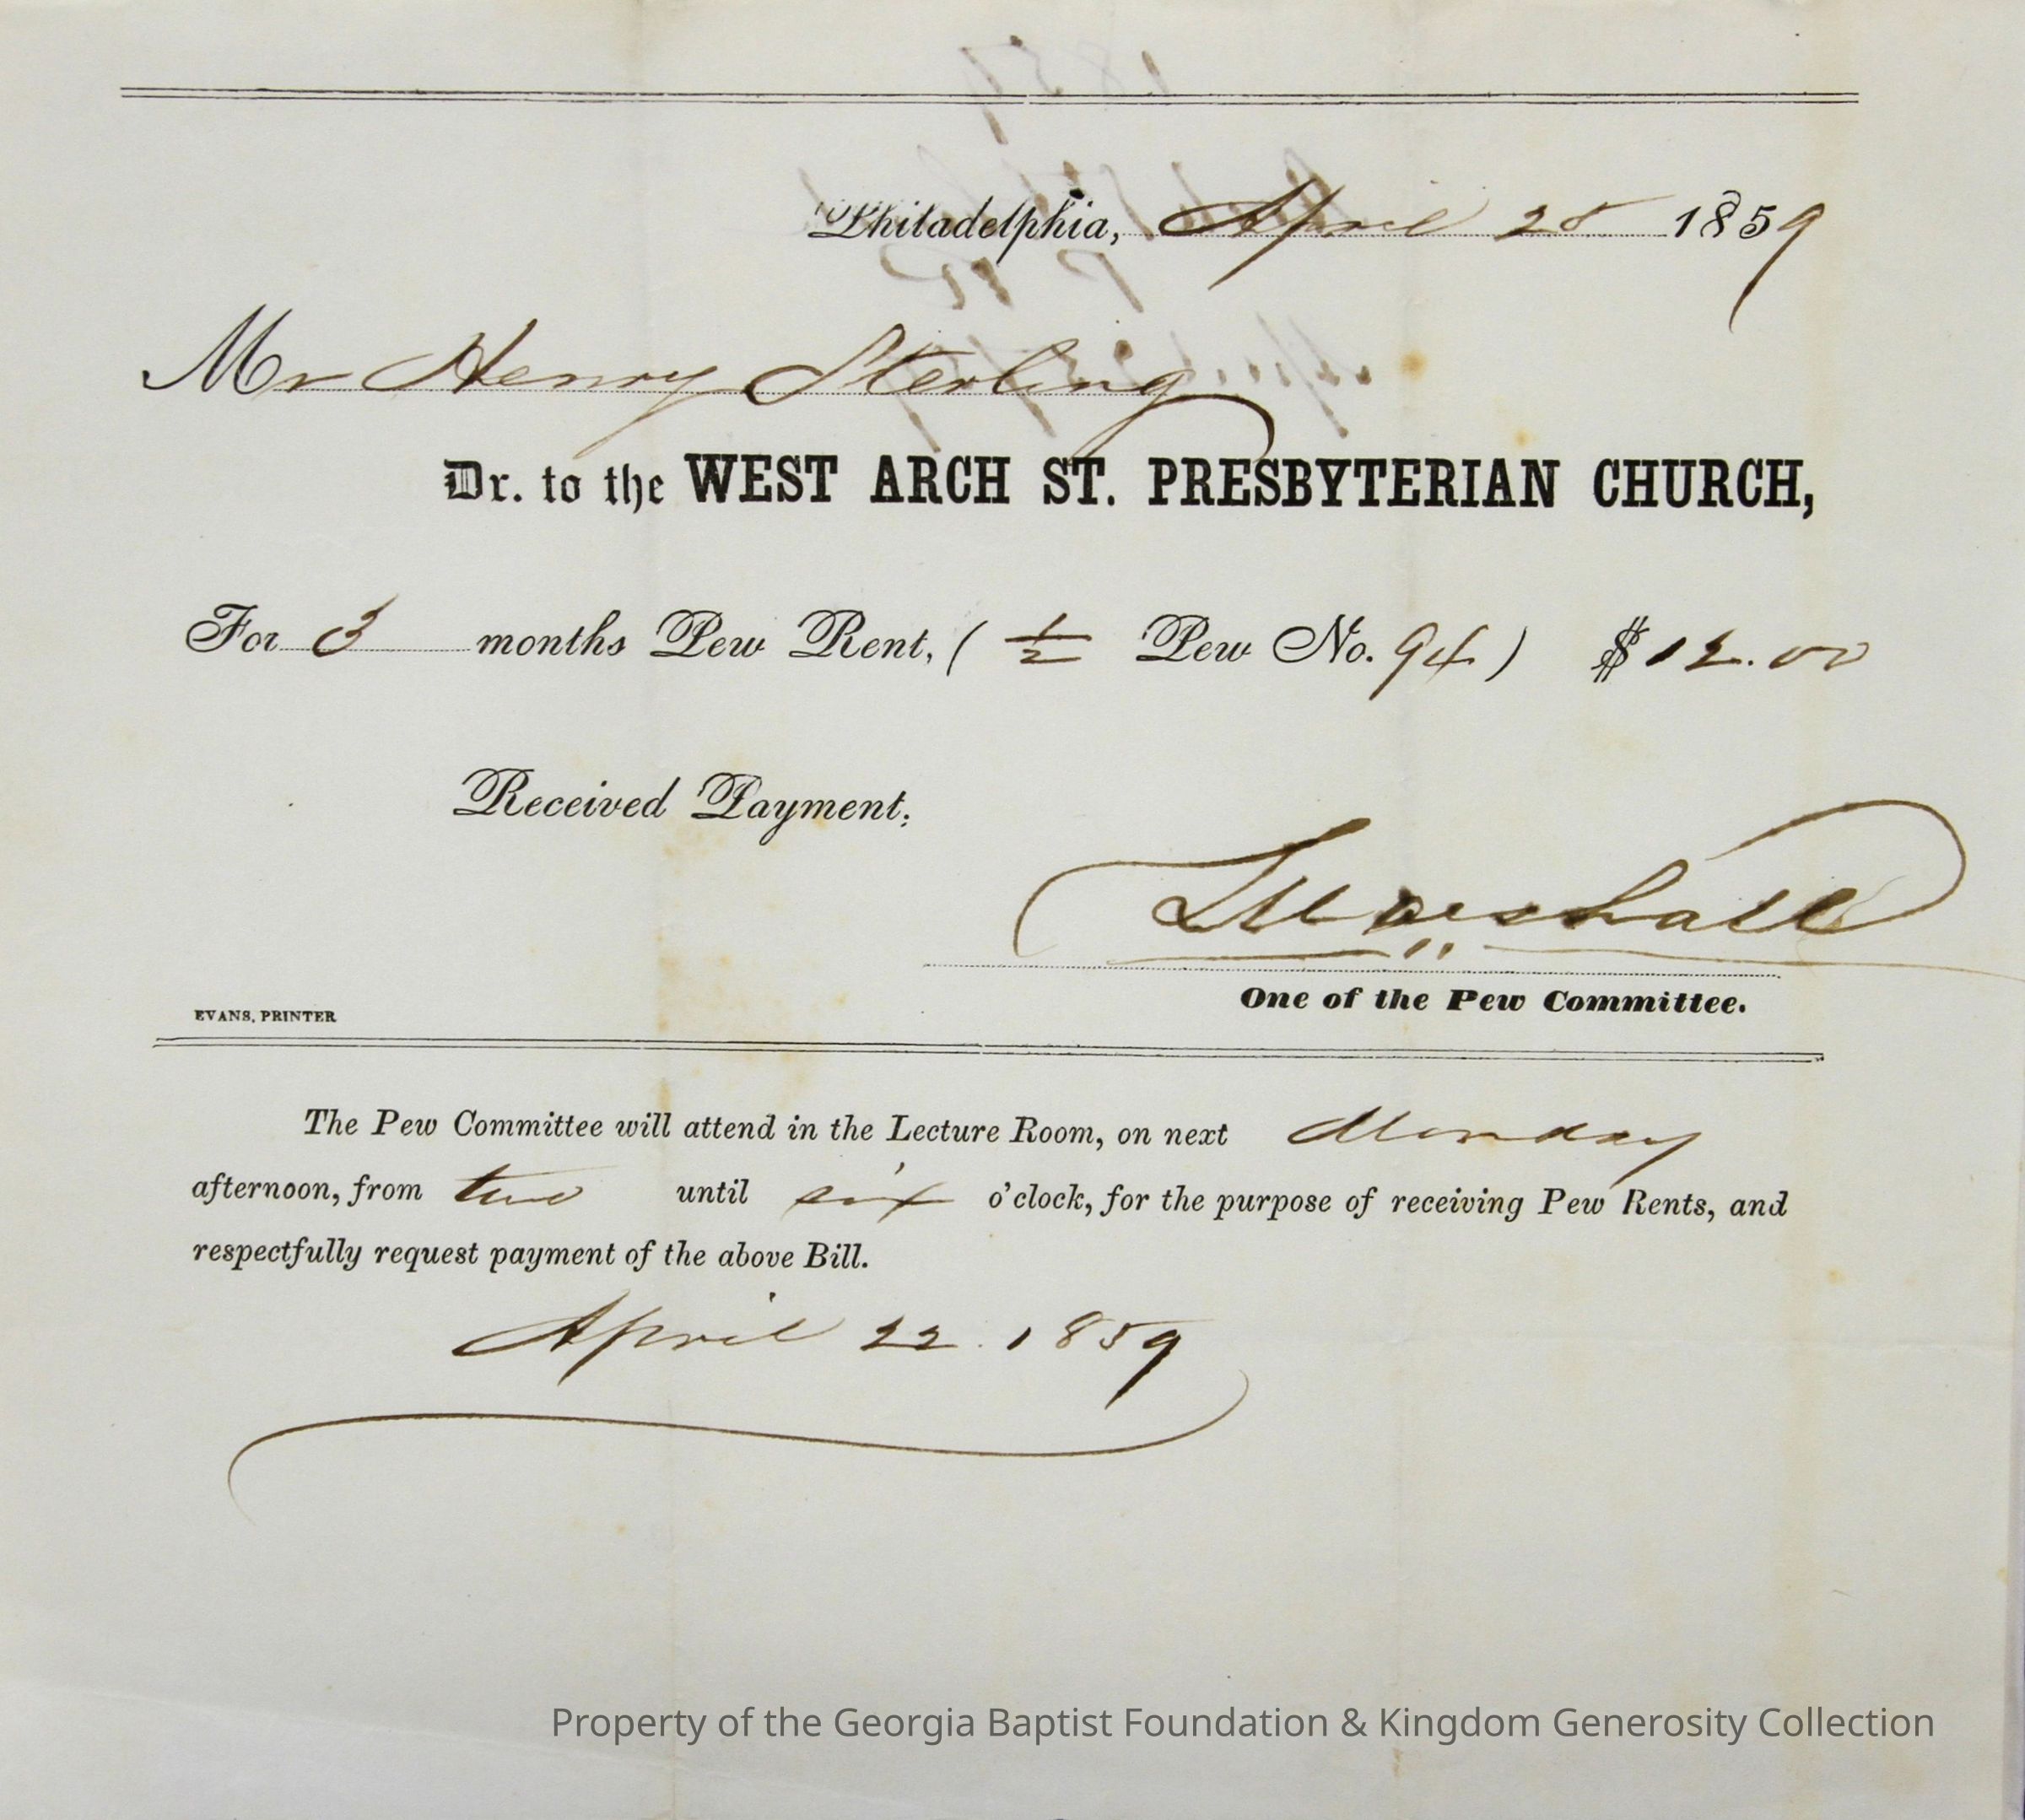 Philadelphia, April 25 1859
Mr Henry Sterling
Dr. to the WEST ARCH ST. PRESBYTERIAN CHURCH,
For 3 months Pew Rent, ( 1/2 Pew No. 94 ) $12.00
Received Payment,
Marshall
One of the Pew Committee.
EVANS, PRINTER
The Pew Committee will attend in the Lecture Room, on next Monday
afternoon, from two until six o'clock, for the purpose of receiving Pew Rents, and
respectfully request payment of the above Bill.
April 22. 1859
Property of the Georgia Baptist Foundation & Kingdom Generosity Collection